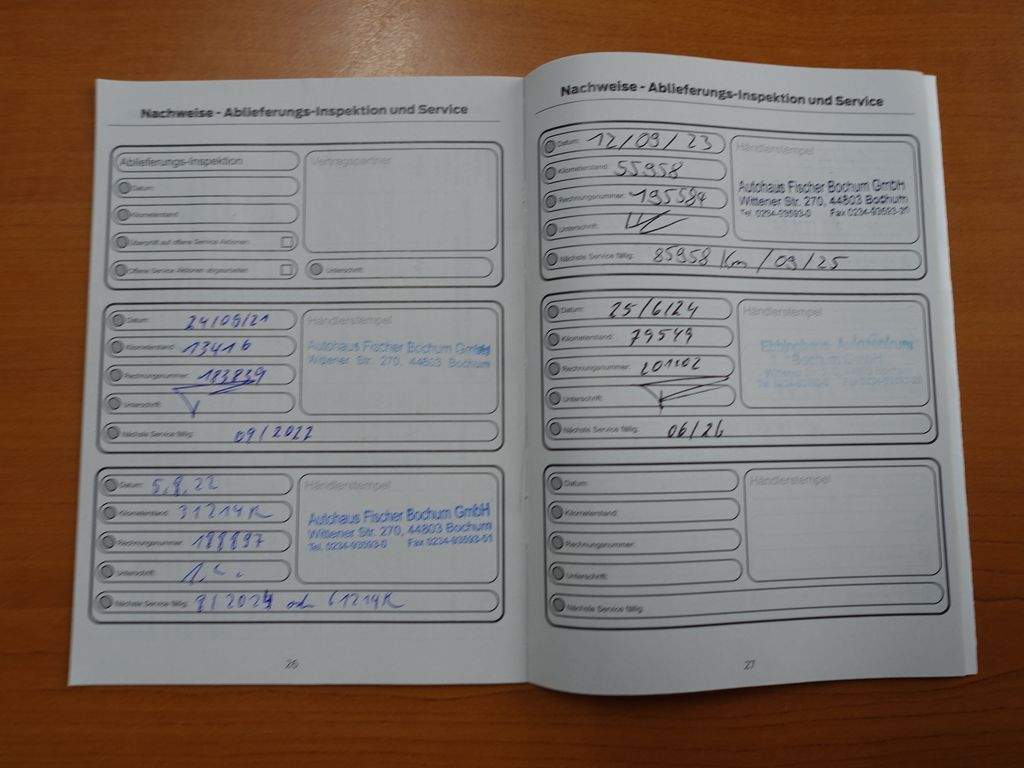 Nachweise - Ablieferungs-Inspektion und Service
Ablieferungs-Inspektion
Vertragspartner
Datum:
Kilometerstand:
Überprüft auf offene Service Aktionen:
Offene Service Aktionen abgearbeitet:
Unterschrift:
Datum: 24/09/21
Händlerstempel
Kilometerstand: 13416
Autohaus Fischer Bochum GmbH
Wittener Str. 270, 44803 Bochum
Rechnungsnummer: 183839
Unterschrift:
Nächste Service fällig: 09/2022
Datum: 5.8.22
Händlerstempel
Kilometerstand: 31214K
Autohaus Fischer Bochum GmbH
Wittener Str. 270, 44803 Bochum
Tel. 0234-93593-0 Fax 0234-93593-51
Rechnungsnummer: 188897
Unterschrift:
Nächste Service fällig: 8/2024 od 61214K
26
Nachweise - Ablieferungs-Inspektion und Service
Datum: 12/09/23
Händlerstempel
Kilometerstand: 55958
Rechnungsnummer: 195584
Autohaus Fischer Bochum GmbH
Wittener Str. 270, 44803 Bochum
Tel. 0234-93593-0 Fax 0234-93593-20
Unterschrift:
Nächste Service fällig: 85958 Km /09/25
Datum: 25/6/24
Händlerstempel
Kilometerstand: 79549
Bochum GmbH
Rechnungsnummer: 201102
Unterschrift:
Nächste Service fällig: 06/26
Datum:
Händlerstempel
Kilometerstand:
Rechnungsnummer:
Unterschrift:
Nächste Service fällig:
27